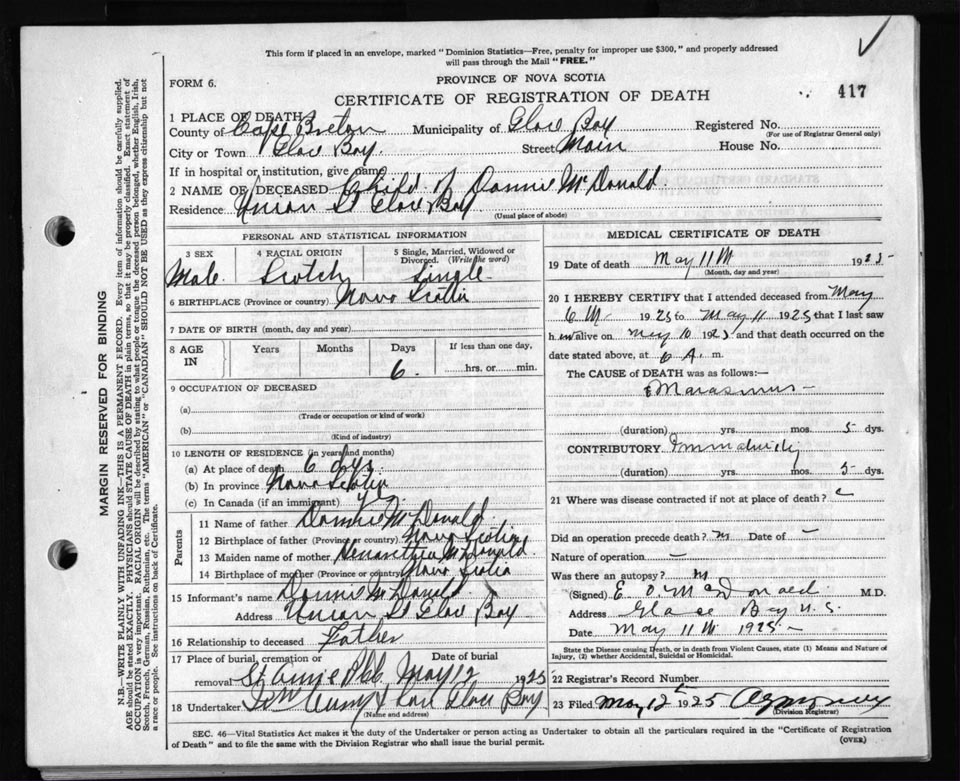 This form if placed in an envelope, marked "Dominion Statistics—Free, penalty for improper use $300," and properly addressed
will pass through the Mail "FREE."
FORM 6.
PROVINCE OF NOVA SCOTIA
417
CERTIFICATE OF REGISTRATION OF DEATH
1 PLACE OF DEATH
County of Cape Breton Municipality of Glace Bay Registered No.
(For use of Registrar General only)
City or Town Glace Bay. Street Main House No.
If in hospital or institution, give name
2 NAME OF DECEASED Child of Donnie McDonald
Residence Union St Glace Bay
(Usual place of abode)
PERSONAL AND STATISTICAL INFORMATION
3 SEX 4 RACIAL ORIGIN 5 Single, Married, Widowed or
Divorced. (Write the word)
Male Scotch Single
6 BIRTHPLACE (Province or country) Nova Scotia
7 DATE OF BIRTH (month, day and year)
8 AGE IN Years Months Days If less than one day,
6. hrs. or min.
9 OCCUPATION OF DECEASED
(a)
(Trade or occupation or kind of work)
(b)
(Kind of industry)
10 LENGTH OF RESIDENCE (in years and months)
(a) At place of death 6 dys
(b) In province Nova Scotia
(c) In Canada (if an immigrant)
Parents
11 Name of father Donnie McDonald
12 Birthplace of father (Province or country) Nova Scotia
13 Maiden name of mother McDonald
14 Birthplace of mother (Province or country) Nova Scotia
15 Informant's name Donnie McDonald
Address Union St Glace Bay
16 Relationship to deceased Father
17 Place of burial, cremation or Date of burial
removal St Anne May 12 1925
18 Undertaker Glace Bay
(Name and address)
MEDICAL CERTIFICATE OF DEATH
19 Date of death May 11th 1925
(Month, day and year)
20 I HEREBY CERTIFY that I attended deceased from May
6th 1925 to May 11 1925 that I last saw
h im alive on May 10 1925 and that death occurred on the
date stated above, at 6 A. m.
The CAUSE of DEATH was as follows:
Marasmus
(duration) yrs. mos. 5 dys.
CONTRIBUTORY
(duration) yrs. mos. 5 dys.
21 Where was disease contracted if not at place of death?
Did an operation precede death? Date of —
Nature of operation —
Was there an autopsy?
(Signed) McDonald M.D.
Address Glace Bay N.S.
Date May 11th 1925
State the Disease causing Death, or in death from Violent Causes, state (1) Means and Nature of
Injury, (2) whether Accidental, Suicidal or Homicidal.
22 Registrar's Record Number
23 Filed May 12 1925
(Division Registrar)
SEC. 46—Vital Statistics Act makes it the duty of the Undertaker or person acting as Undertaker to obtain all the particulars required in the "Certificate of Registration
of Death" and to file the same with the Division Registrar who shall issue the burial permit.
(OVER)
MARGIN RESERVED FOR BINDING
N.B.—WRITE PLAINLY WITH UNFADING INK—THIS IS A PERMANENT RECORD. Every item of information should be carefully supplied.
AGE should be stated EXACTLY. PHYSICIANS should STATE CAUSE OF DEATH in plain terms, so that it may be properly classified. Exact statement of
OCCUPATION is very important. RACIAL ORIGIN will be described by stating to what people or tongue the deceased person belonged, whether English, Irish,
Scotch, French, German, Russian, Ruthenian, etc. The terms "AMERICAN" or "CANADIAN" SHOULD NOT BE USED as they express citizenship but not
a race or people. See instructions on back of Certificate.